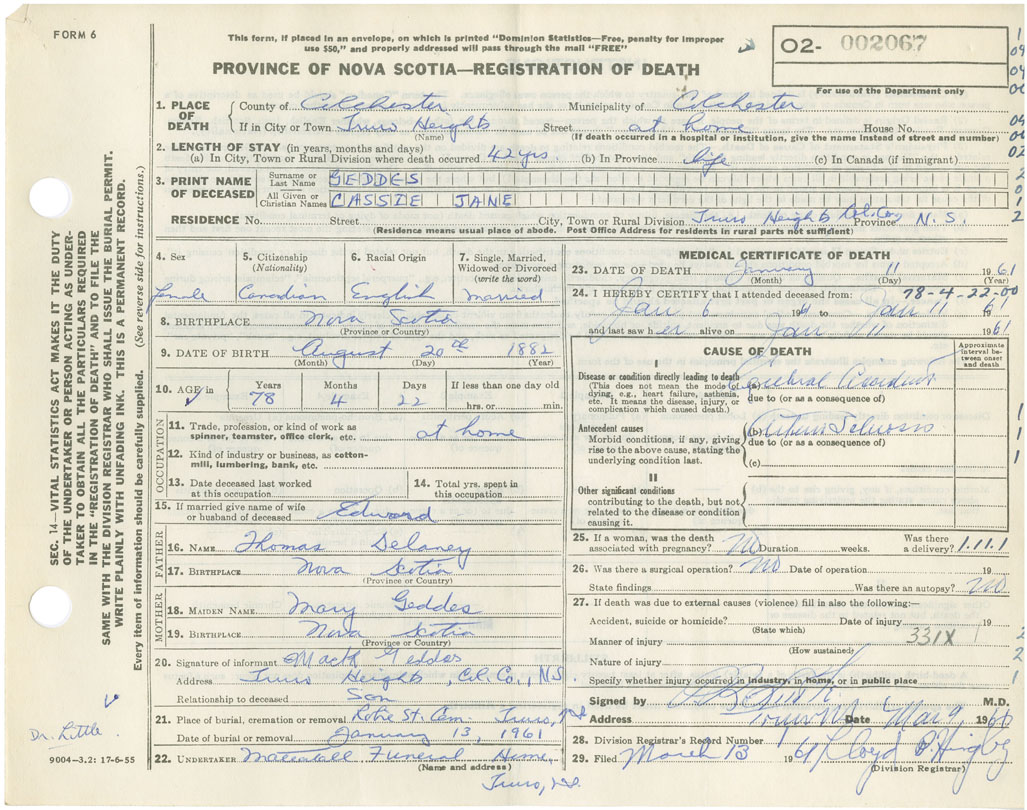 FORM 6
This form, if placed in an envelope, on which is printed "Dominion Statistics—Free, penalty for improper
use $50," and properly addressed will pass through the mail "FREE"
O2- 002067
For use of the Department only
PROVINCE OF NOVA SCOTIA—REGISTRATION OF DEATH
1. PLACE OF DEATH County of Colchester Municipality of Colchester
If in City or Town Truro Heights Street at home House No.
(Name) (If death occurred in a hospital or institution, give the name instead of street and number)
2. LENGTH OF STAY (in years, months and days)
(a) In City, Town or Rural Division where death occurred 42 yrs. (b) In Province life (c) In Canada (if immigrant)
3. PRINT NAME OF DECEASED Surname or Last Name GEDDES
All Given or Christian Names CASSIE JANE
RESIDENCE No. Street City, Town or Rural Division Truro Heights Col. Co. Province N.S.
(Residence means usual place of abode. Post Office Address for residents in rural parts not sufficient)
4. Sex female
5. Citizenship (Nationality) Canadian
6. Racial Origin English
7. Single, Married, Widowed or Divorced (write the word) married
8. BIRTHPLACE Nova Scotia
(Province or Country)
9. DATE OF BIRTH August 20th 1882
(Month) (Day) (Year)
10. AGE in Years 78 Months 4 Days 22 If less than one day old hrs. or min.
OCCUPATION
11. Trade, profession, or kind of work as spinner, teamster, office clerk, etc. at home
12. Kind of industry or business, as cotton-mill, lumbering, bank, etc.
13. Date deceased last worked at this occupation
14. Total yrs. spent in this occupation
15. If married give name of wife or husband of deceased Edward
FATHER
16. NAME Thomas Delaney
17. BIRTHPLACE Nova Scotia
(Province or Country)
MOTHER
18. MAIDEN NAME Mary Geddes
19. BIRTHPLACE Nova Scotia
(Province or Country)
20. Signature of informant Mack Geddes
Address Truro Heights, Col. Co., N.S.
Relationship to deceased Son
21. Place of burial, cremation or removal Robie St. Cem. Truro, N.S.
Date of burial or removal January 13, 1961
22. UNDERTAKER Mattatall Funeral Home,
(Name and address)
Truro, N.S.
MEDICAL CERTIFICATE OF DEATH
23. DATE OF DEATH January 11 1961
(Month) (Day) (Year)
24. I HEREBY CERTIFY that I attended deceased from: 78-4-22-00
Jan 6 1961 to Jan 11 1961
and last saw her alive on Jan 11 1961
CAUSE OF DEATH
Approximate interval between onset and death
I
Disease or condition directly leading to death (a) Cerebral
(This does not mean the mode of dying, e.g., heart failure, asthenia, etc. It means the disease, injury, or complication which caused death.)
due to (or as a consequence of)
Antecedent causes (b)
Morbid conditions, if any, giving rise to the above cause, stating the underlying condition last.
due to (or as a consequence of)
(c)
II
Other significant conditions
contributing to the death, but not related to the disease or condition causing it.
25. If a woman, was the death associated with pregnancy? No Duration weeks. Was there a delivery? 1.11.1
26. Was there a surgical operation? No Date of operation 19
State findings Was there an autopsy? No
27. If death was due to external causes (violence) fill in also the following:—
Accident, suicide or homicide? Date of injury 19
(State which)
Manner of injury 331X
(How sustained)
Nature of injury
Specify whether injury occurred in industry, in home, or in public place
Signed by M.D.
Address Truro NS Date Mar 9, 1966
28. Division Registrar's Record Number 1
29. Filed March 13 1961 Lloyd
(Division Registrar)
SEC. 14—VITAL STATISTICS ACT MAKES IT THE DUTY
OF THE UNDERTAKER OR PERSON ACTING AS UNDER-
TAKER TO OBTAIN ALL THE PARTICULARS REQUIRED
IN THE "REGISTRATION OF DEATH" AND TO FILE THE
SAME WITH THE DIVISION REGISTRAR WHO SHALL ISSUE THE BURIAL PERMIT.
WRITE PLAINLY WITH UNFADING INK. THIS IS A PERMANENT RECORD.
Every item of information should be carefully supplied. (See reverse side for instructions.)
Dr. Little
9004—3.2: 17-6-55